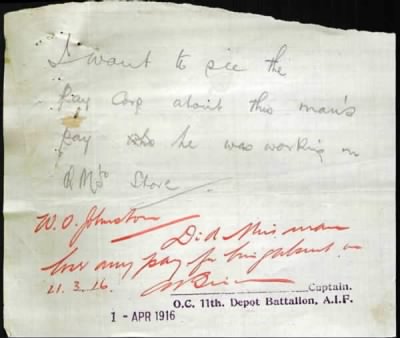 I want to see the
Pay Corp about this man's
pay who he was working in
Q.M's Store.
W.O. Johnstone
Did this man
lose any pay for being absent
21.3.16.
Captain.
O.C. 11th. Depot Battalion, A.I.F.
1 - APR 1916